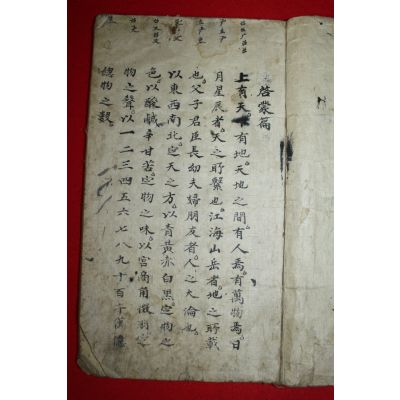 啓蒙篇
上有天下有地天地之間有人焉有萬物焉日
月星辰者天之所繫也江海山岳者地之所載
也父子君臣長幼夫婦朋友者人之大倫也
以東西南北定天之方以青黃赤白黑定物之
色以酸鹹辛甘苦定物之味以宮商角徵羽定
物之聲以一二三四五六七八九十百千萬億
總物之數